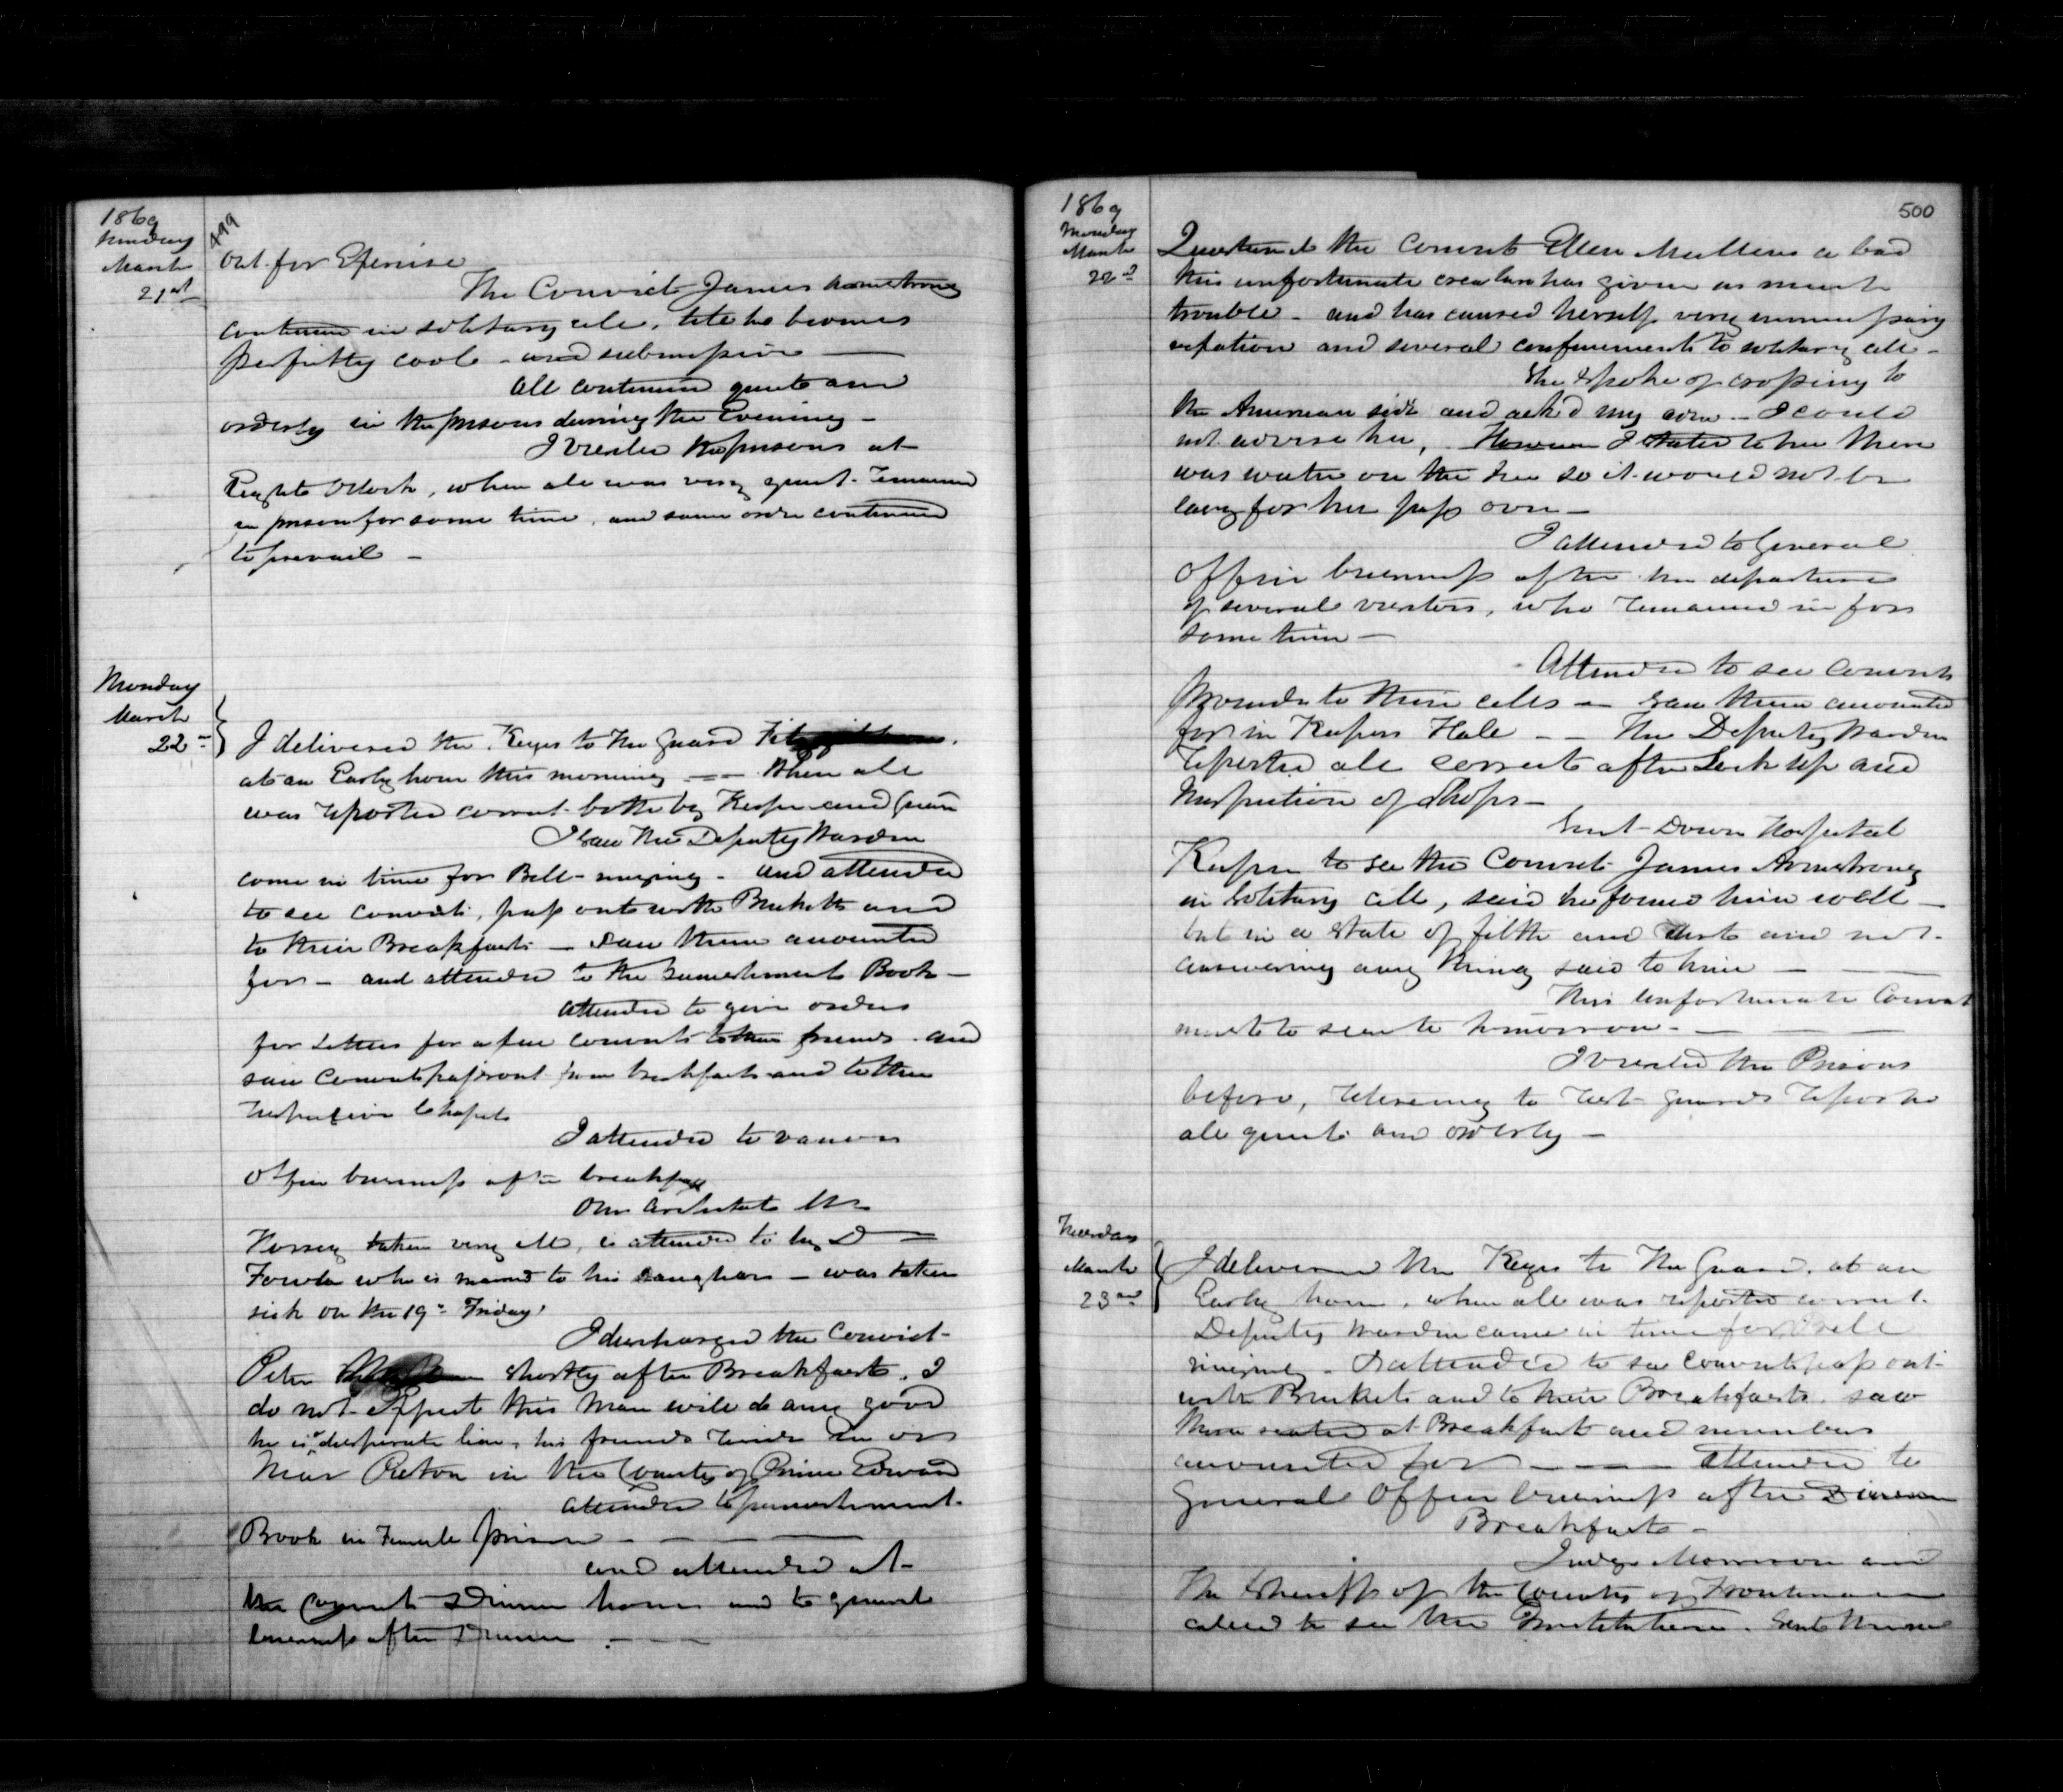 1869
Sunday
March
21st
499
out for Exercise
The Convict James Armstrong
continues in solitary cell, till he becomes
perfectly cool - and submissive
All continued quiet and
orderly in the prisons during the Evening -
I visited the prisons at
Eight Oclock, when all was very quiet. remained
in prison for some time, and same order continued
to prevail -
Monday
March
22nd
I delivered the Keys to the Guard
at an Early hour this morning - when all
was reported correct both by Keeper and Guard
I saw the Deputy Warden
come in time for Bell-ringing - and attended
to see convicts, pass out with Bucketts and
to their Breakfasts - saw them accounted
for - and attended to the Punishment Book -
attended to give orders
for Letters for a few convicts to their friends. and
saw convicts pass out from breakfast and to their
respective Shops
I attended to various
Office business after breakfast
Our Architect Mr
Horsey taken very ill, is attended to by D
Fowler who is married to his daughter - was taken
sick on the 19th Friday.
I discharged the Convict
Peter shortly after Breakfast. I
do not Expect this man will do any good
he is a desperate liar, his friends reside in or
Near Picton in the County of Prince Edward
attended to punishment
Book in Female prison
and attended at
the Convicts Dinner hour and to general
business after Dinner
1869
Monday
March
22nd
500
Questioned the Convict Ellen Mullens a bad
this unfortunate creature has given us much
trouble - and has caused herself very
and several confinements to solitary cell -
She spoke of crossing to
the American side and ask'd my advice - I could
not advise her, However I stated to her there
was water on the ice so it would not be
easy for her pass over -
I attended to General
Office business after the departure
of several visitors, who remained in for
some time -
Attended to see convicts
to their cells - saw them accounted
for in Keepers Hall - - The Deputy Warden
reported all correct after Lock up and
Inspection of Shops -
Sent Down Hospital
Keeper to see the Convict James Armstrong
in Solitary cell, said he found him well -
but in a state of filth and dirt and not
answering any thing said to him -
This unfortunate Convict
must to tomorrow -
I visited the Prisons
before, retireing to rest guards reported
all quiet and orderly -
Tuesday
March
23rd
I delivered the Keys to the Guard. at an
Early hour, when all was reported correct.
Deputy Warden came in time for Bell
ringing - I attended to see convicts pass out
with Buckets and to their Breakfasts. saw
them seated at Breakfast and numbers
accounted for - - - attended to
General Office business after Dinner
Breakfast -
Judge Morrison and
The Sheriff of the County of Frontenac
called to see the Institution. Sent them